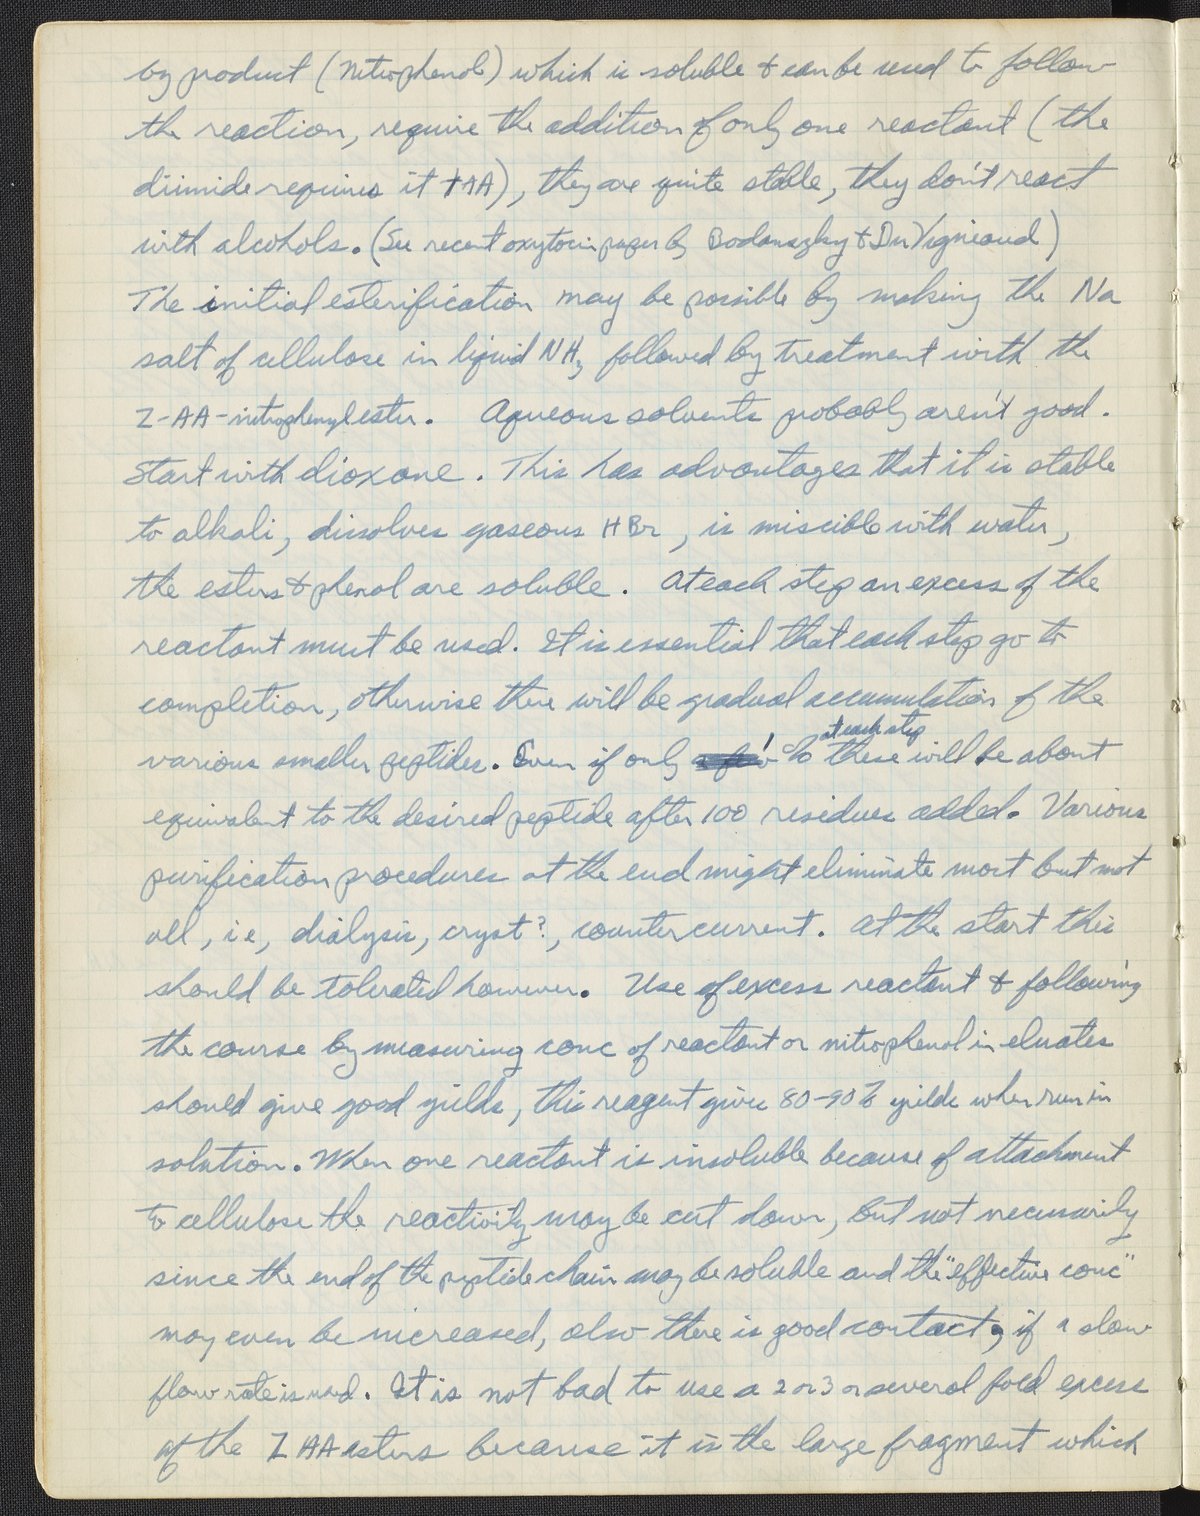 by product (nitrophenol) which is soluble & can be used to follow
the reaction, require the addition of only one reactant (the
diimide requires it + AA), they are quite stable, they don't react
with alcohols. (See recent oxytocin paper by Bodanszky & Du Vigneaud)
The initial esterification may be possible by making the Na
salt of cellulose in liquid NH3 followed by treatment with the
Z-AA-nitrophenylester. Aqueous solvents probably aren't good.
Start with dioxane. This has advantages that it is stable
to alkali, dissolves gaseous HBr, is miscible with water,
the esters & phenol are soluble. At each step an excess of the
reactant must be used. It is essential that each step go to
completion, otherwise there will be gradual accumulation of the
at each step
various smaller peptides. Even if only 1% these will be about
equivalent to the desired peptide after 100 residues added. Various
purification procedures at the end might eliminate most but not
all, i.e, dialysis, cryst?, countercurrent. At the start this
should be tolerated however. Use of excess reactant & following
the course by measuring conc of reactant or nitrophenol in eluates
should give good yields, this reagent gives 80-90% yields when run in
solution. When one reactant is insoluble because of attachment
to cellulose the reactivity may be cut down, but not necessarily
since the end of the peptide chain may be soluble and the "effective conc"
may even be increased, also there is good contact, if a slow
flow rate is used. It is not bad to use a 2 or 3 or several fold excess
of the Z AA esters because it is the large fragment which